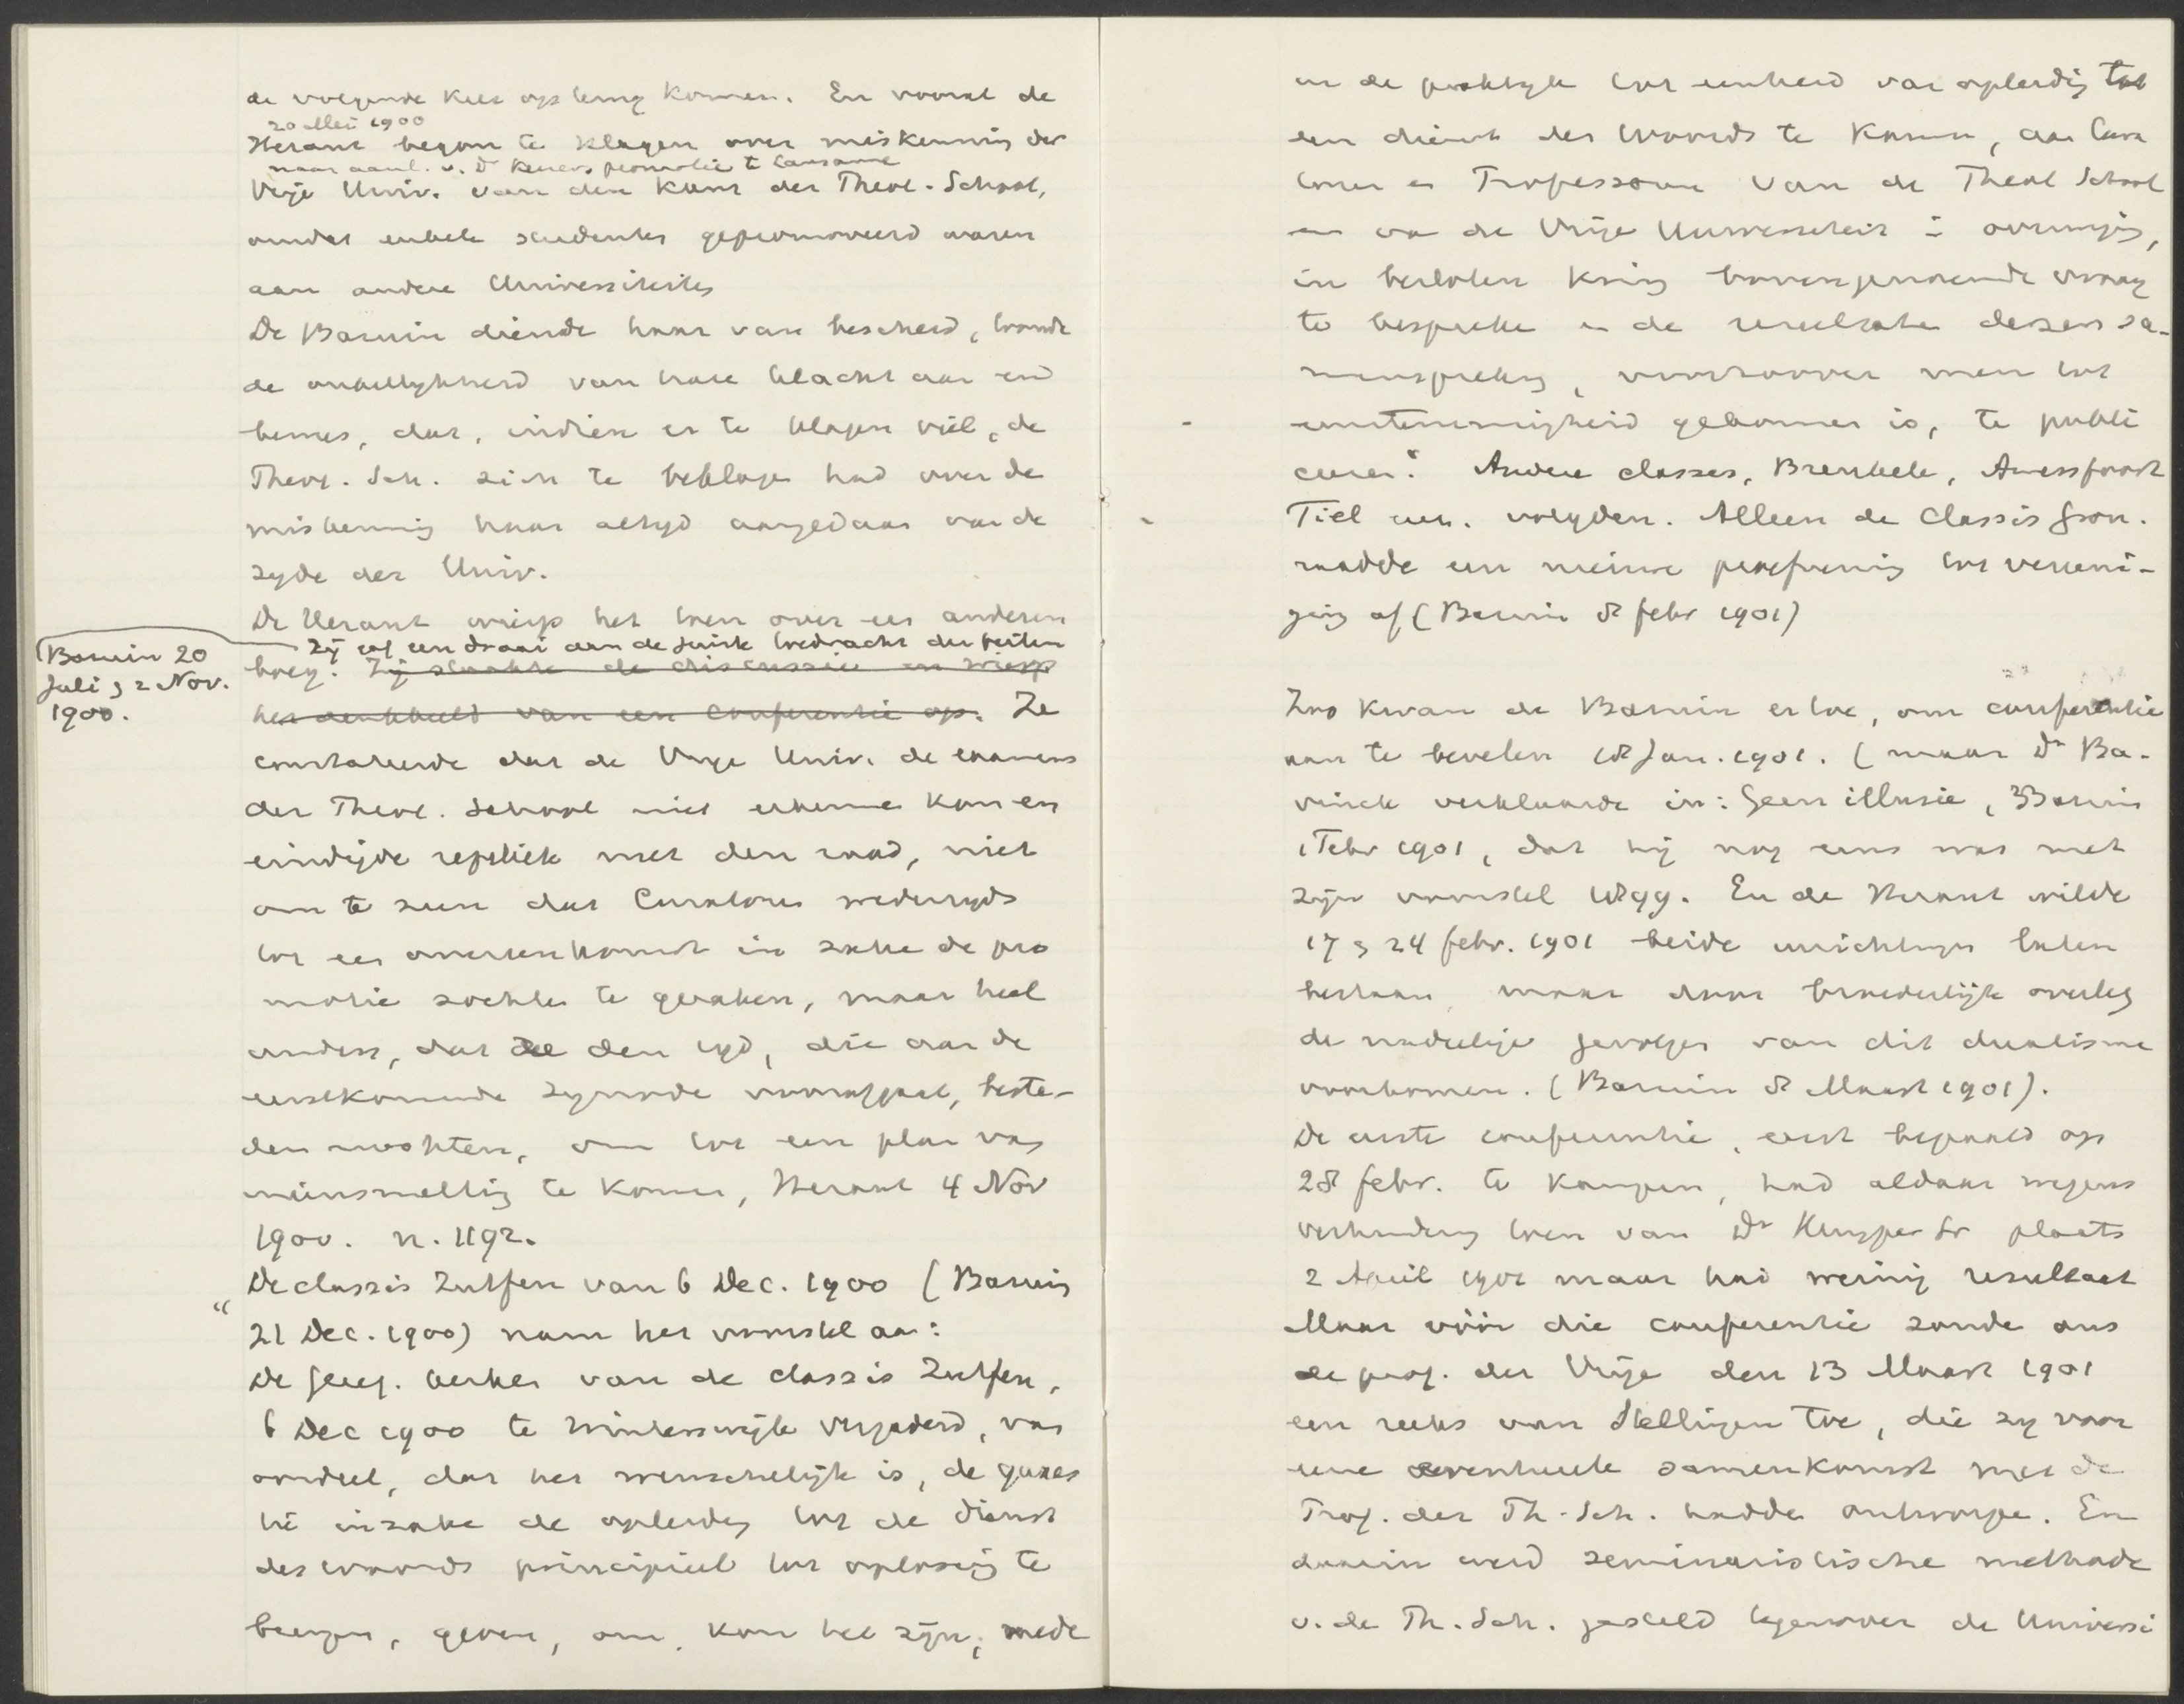 de volgende keer op terug komen. En vooral de
20 Mei 1900
Heraut begon te klagen over miskenning der
naar aanl. v. Dr promotie te Lausanne
Vrije Univ. van den kant der Theol. School,
omdat enkele studenten gepromoveerd waren
aan andere Universiteiten
De Bazuin diende haar van bescheid, toonde
de onbillijkheid van hare klacht aan en
bewees, dat, indien er te klagen viel, de
Theol. Sch. zich te beklagen had over de
miskenning haar altyd aangedaan van de
zyde der Univ.
De Heraut wierp het toen over een anderen
Zij gaf een draai aan de
Bazuin 20
Juli, 2 Nov.
1900.
boeg. Zij staakte de discussie en wierp
het denkbeeld van een conferentie op. Ze
constateerde dat de Vrije Univ. de examens
der Theol. School niet erkennen kan en
eindigde repliek met den raad, niet
om te zien dat Curatoren wederzyds
tot een overeenkomst in zake de pro
motie zochten te geraken, maar heel
anders, dat ze den tyd, die aan de
eerstkomende synode voorafgaat, beste-
den mochten, om tot een plan van
ineensmelting te komen, Heraut 4 Nov
1900. n. 1192.
De classis Zutfen van 6 Dec. 1900 (Bazuin
21 Dec. 1900) nam het voorstel aan:
"De Geref. kerken van de classis Zutfen,
6 Dec 1900 te Winterswijk vergaderd, van
oordeel, dat het wenschelijk is, de quaes
tie inzake de opleiding tot de dienst
des woords principieel tot oplossing te
brengen, geven, om, kon het zijn, mede
in de praktyk tot eenheid van opleiding tot
den dienst des Woords te komen, aan Cura
toren en Professoren van de Theol School
en van de Vrije Universiteit in overweging,
in besloten kring bovengenoemde vraag
te bespreken en de resultaten dezer sa-
menspreking, voorzoover men tot
eenstemmigheid gekomen is, te publi
ceeren." Andere classes, Breukele, Amersfoort
Tiel enz. volgden. Alleen de Classis Gron.
raadde een nieuwe proefneming tot vereeni-
ging af (Bazuin 8 febr 1901)
Zoo kwam de Bazuin er toe, om conferentie
aan te bevelen 18 Jan. 1901. (maar Dr Ba-
vinck verklaarde in: Geen illusie, Bazuin
1 Febr 1901, dat hij nog eens was met
zijn voorstel 1899. En de Heraut wilde
17, 24 febr. 1901 beide inrichtingen laten
bestaan, maar door broederlijk overleg
de nadeelige gevolgen van dit dualisme
voorkomen. (Bazuin 8 Maart 1901).
De eerste conferentie, eerst bepaald op
28 febr. te Kampen, had aldaar wegens
verhindering toen van Dr Kuyper Sr plaats
2 April 1901 maar had weinig resultaat
Maar vóór die conferentie zonden ons
de prof. der Vrije den 13 Maart 1901
een reeks van Stellingen toe, die zy voor
eene eventueele samenkomst met de
Prof. der Th. Sch. hadden ontworpen. En
daarin werd seminaristische methode
v. de Th. Sch. gesteld tegenover de Universi